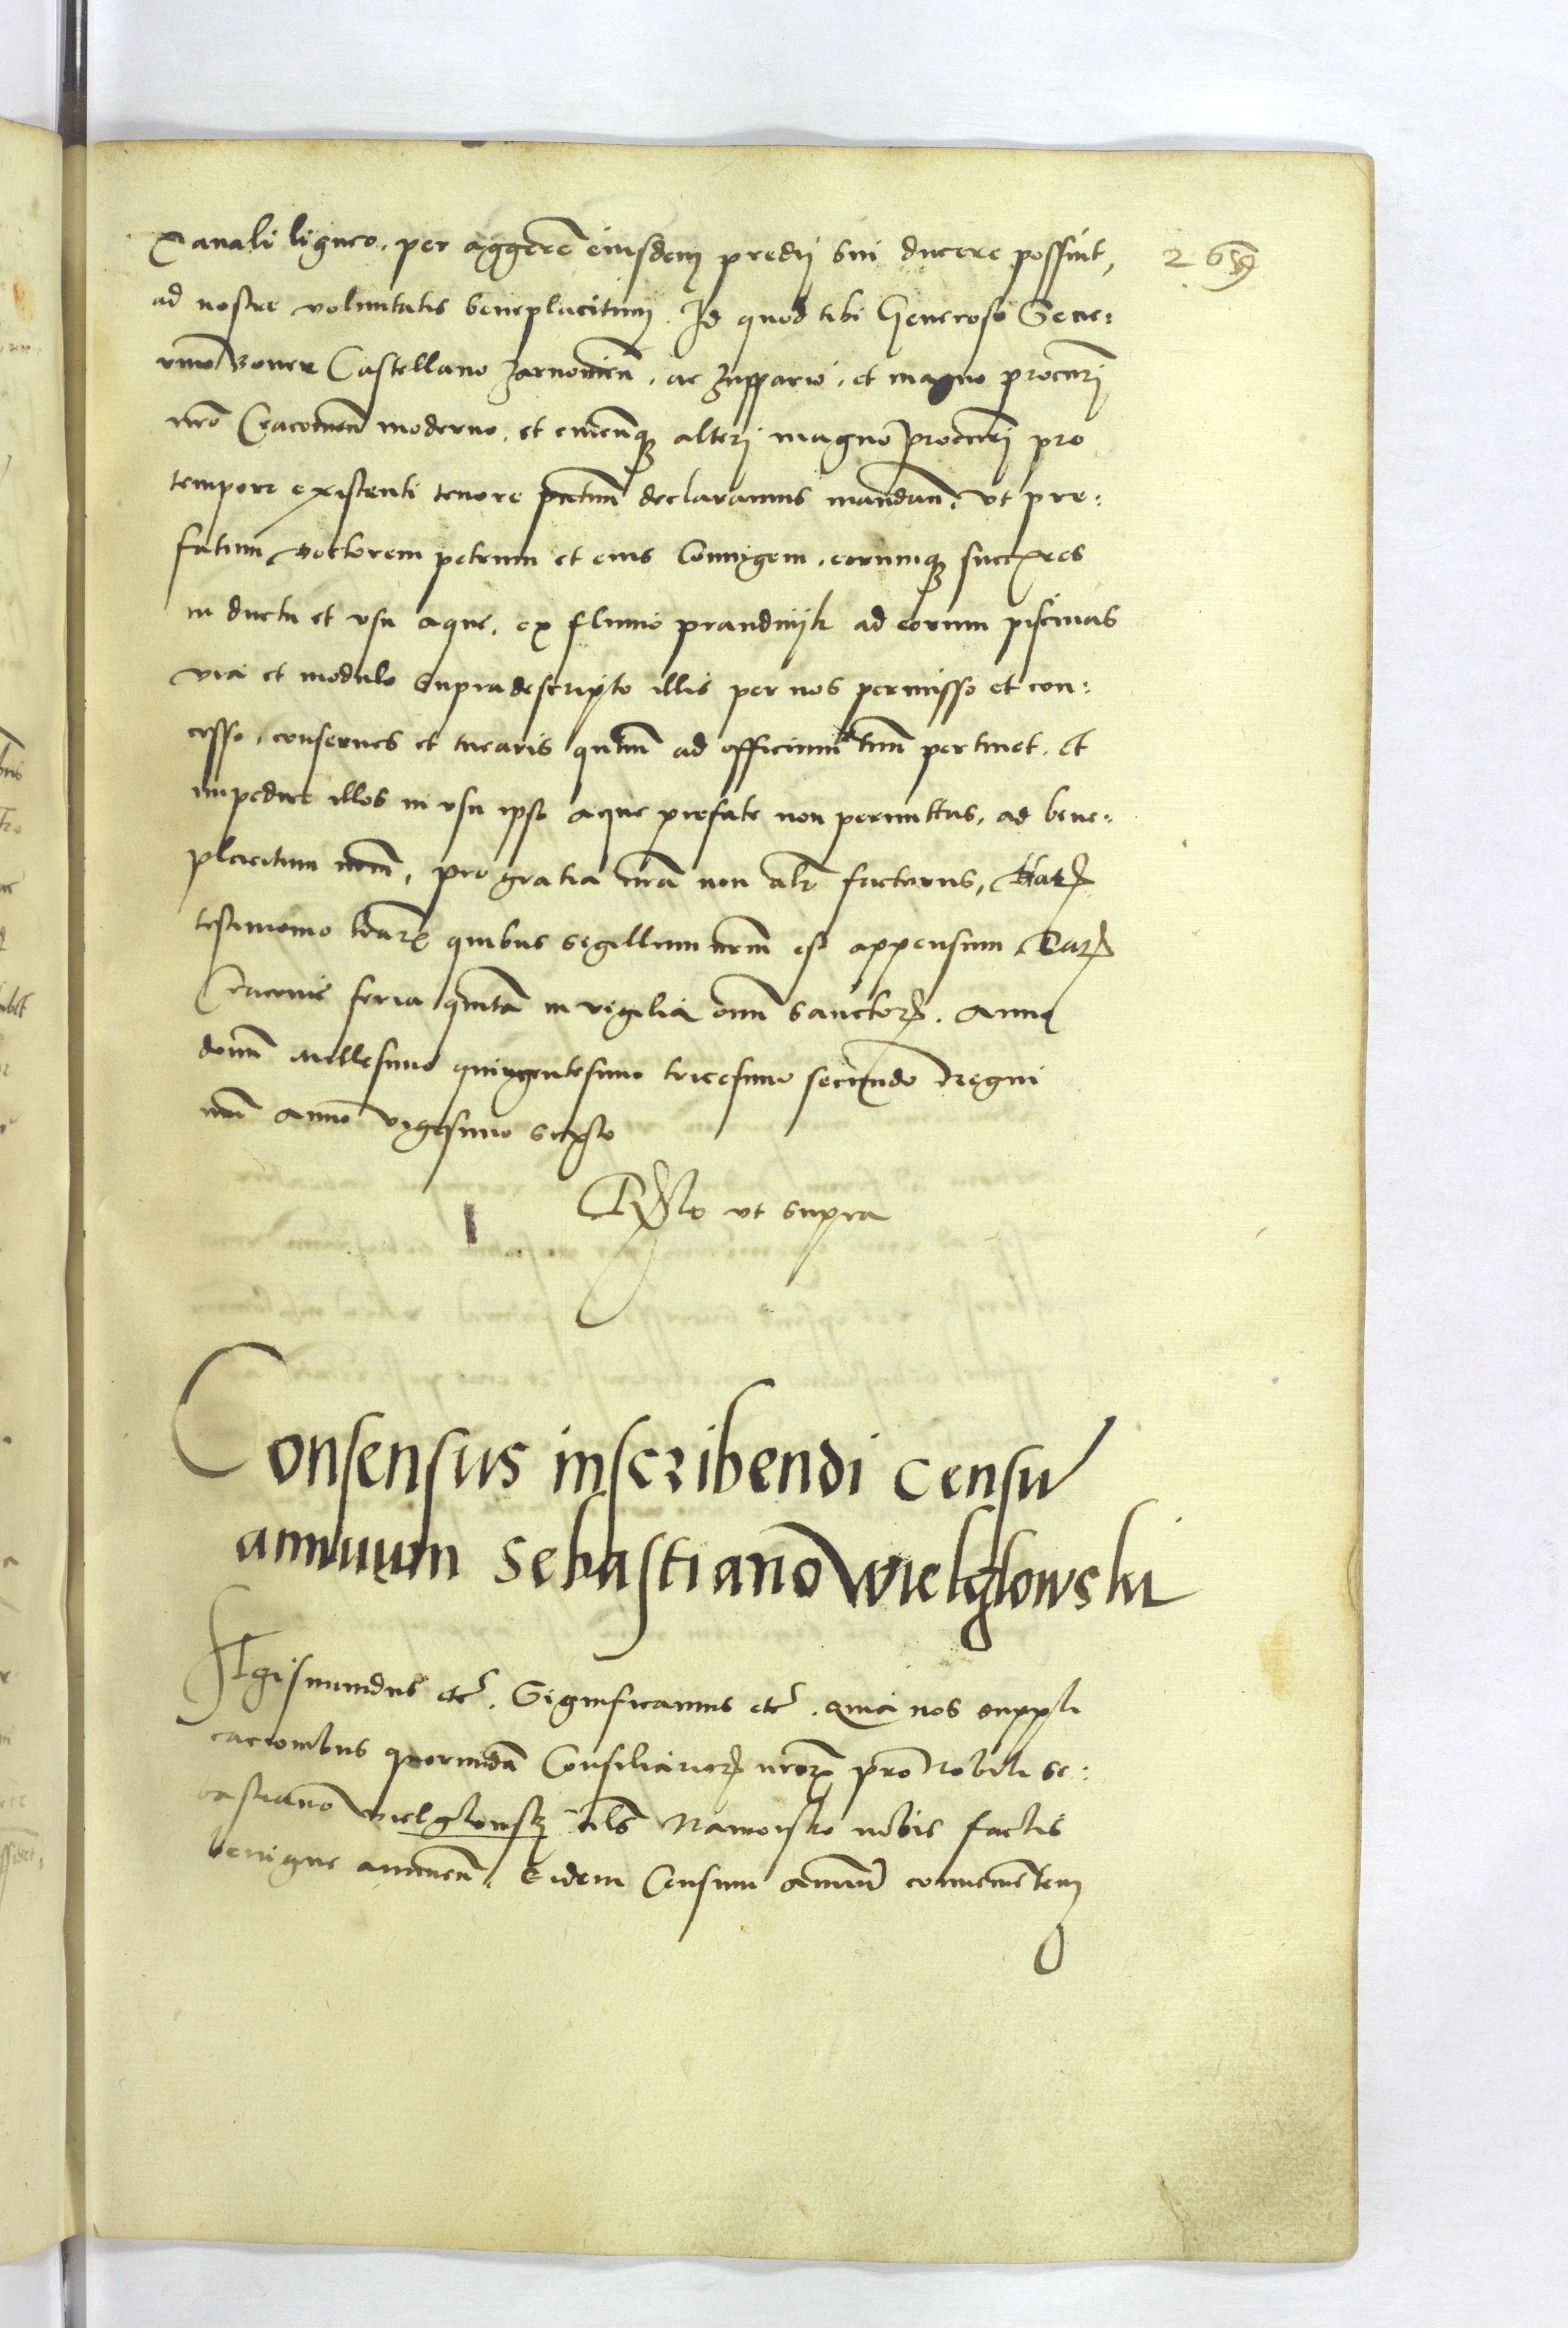 Canali ligneo, per aggerē eiusdem predii sui ducere possint,
ad nostre voluntatis beneplacitum. Id quod tibi Generoso Seue:
rino Boner Castellano Zarnowieñ, ac Zuppario, et magno procurī
nrō Cracovieñ moderno, et cuicunq3 alteri magno procurī pro
tempore existenti tenore pñtium declaramus mandañ, vt pre:
fatum doctorem petrum et eius Coniugem, eorumq3 succēs̄ores
in ductu et vsu aque, ex fluuio prandnijk ad eorum piscinas
via et modulo supradescripto illis per nos permisso et con:
cesso, conserues et tuearis qñtum ad officium tuum pertinet, et
impedire illos in vsu ipso aque prefate non permittas, ad bene:
placitum nrm̄, pro gratia nrā non alr̄ facturus, Harꝝ
testimonio lrarꝝ quibus sigillum nrm̄ est appensum Datꝝ
Cracovie feria quinta in vigilia om̄ sanctorꝝ. Anno
domī Millesimo quingentesimo tricesimo secundo Regni
nrī Anno vigesimo sexto
Rlō vt supra
Consensus inscribendi censū
annuum Sebastiano Wielglowski
Sigismundus etc̄. Significamus etc̄. quia nos suppli
cacionibus quorundā Consiliariorꝝ nrorꝝ pro Nobili Se:
bastiano vielglowsky nobis factis
benigne annueñ, Eidem Censum annuū conuenientem